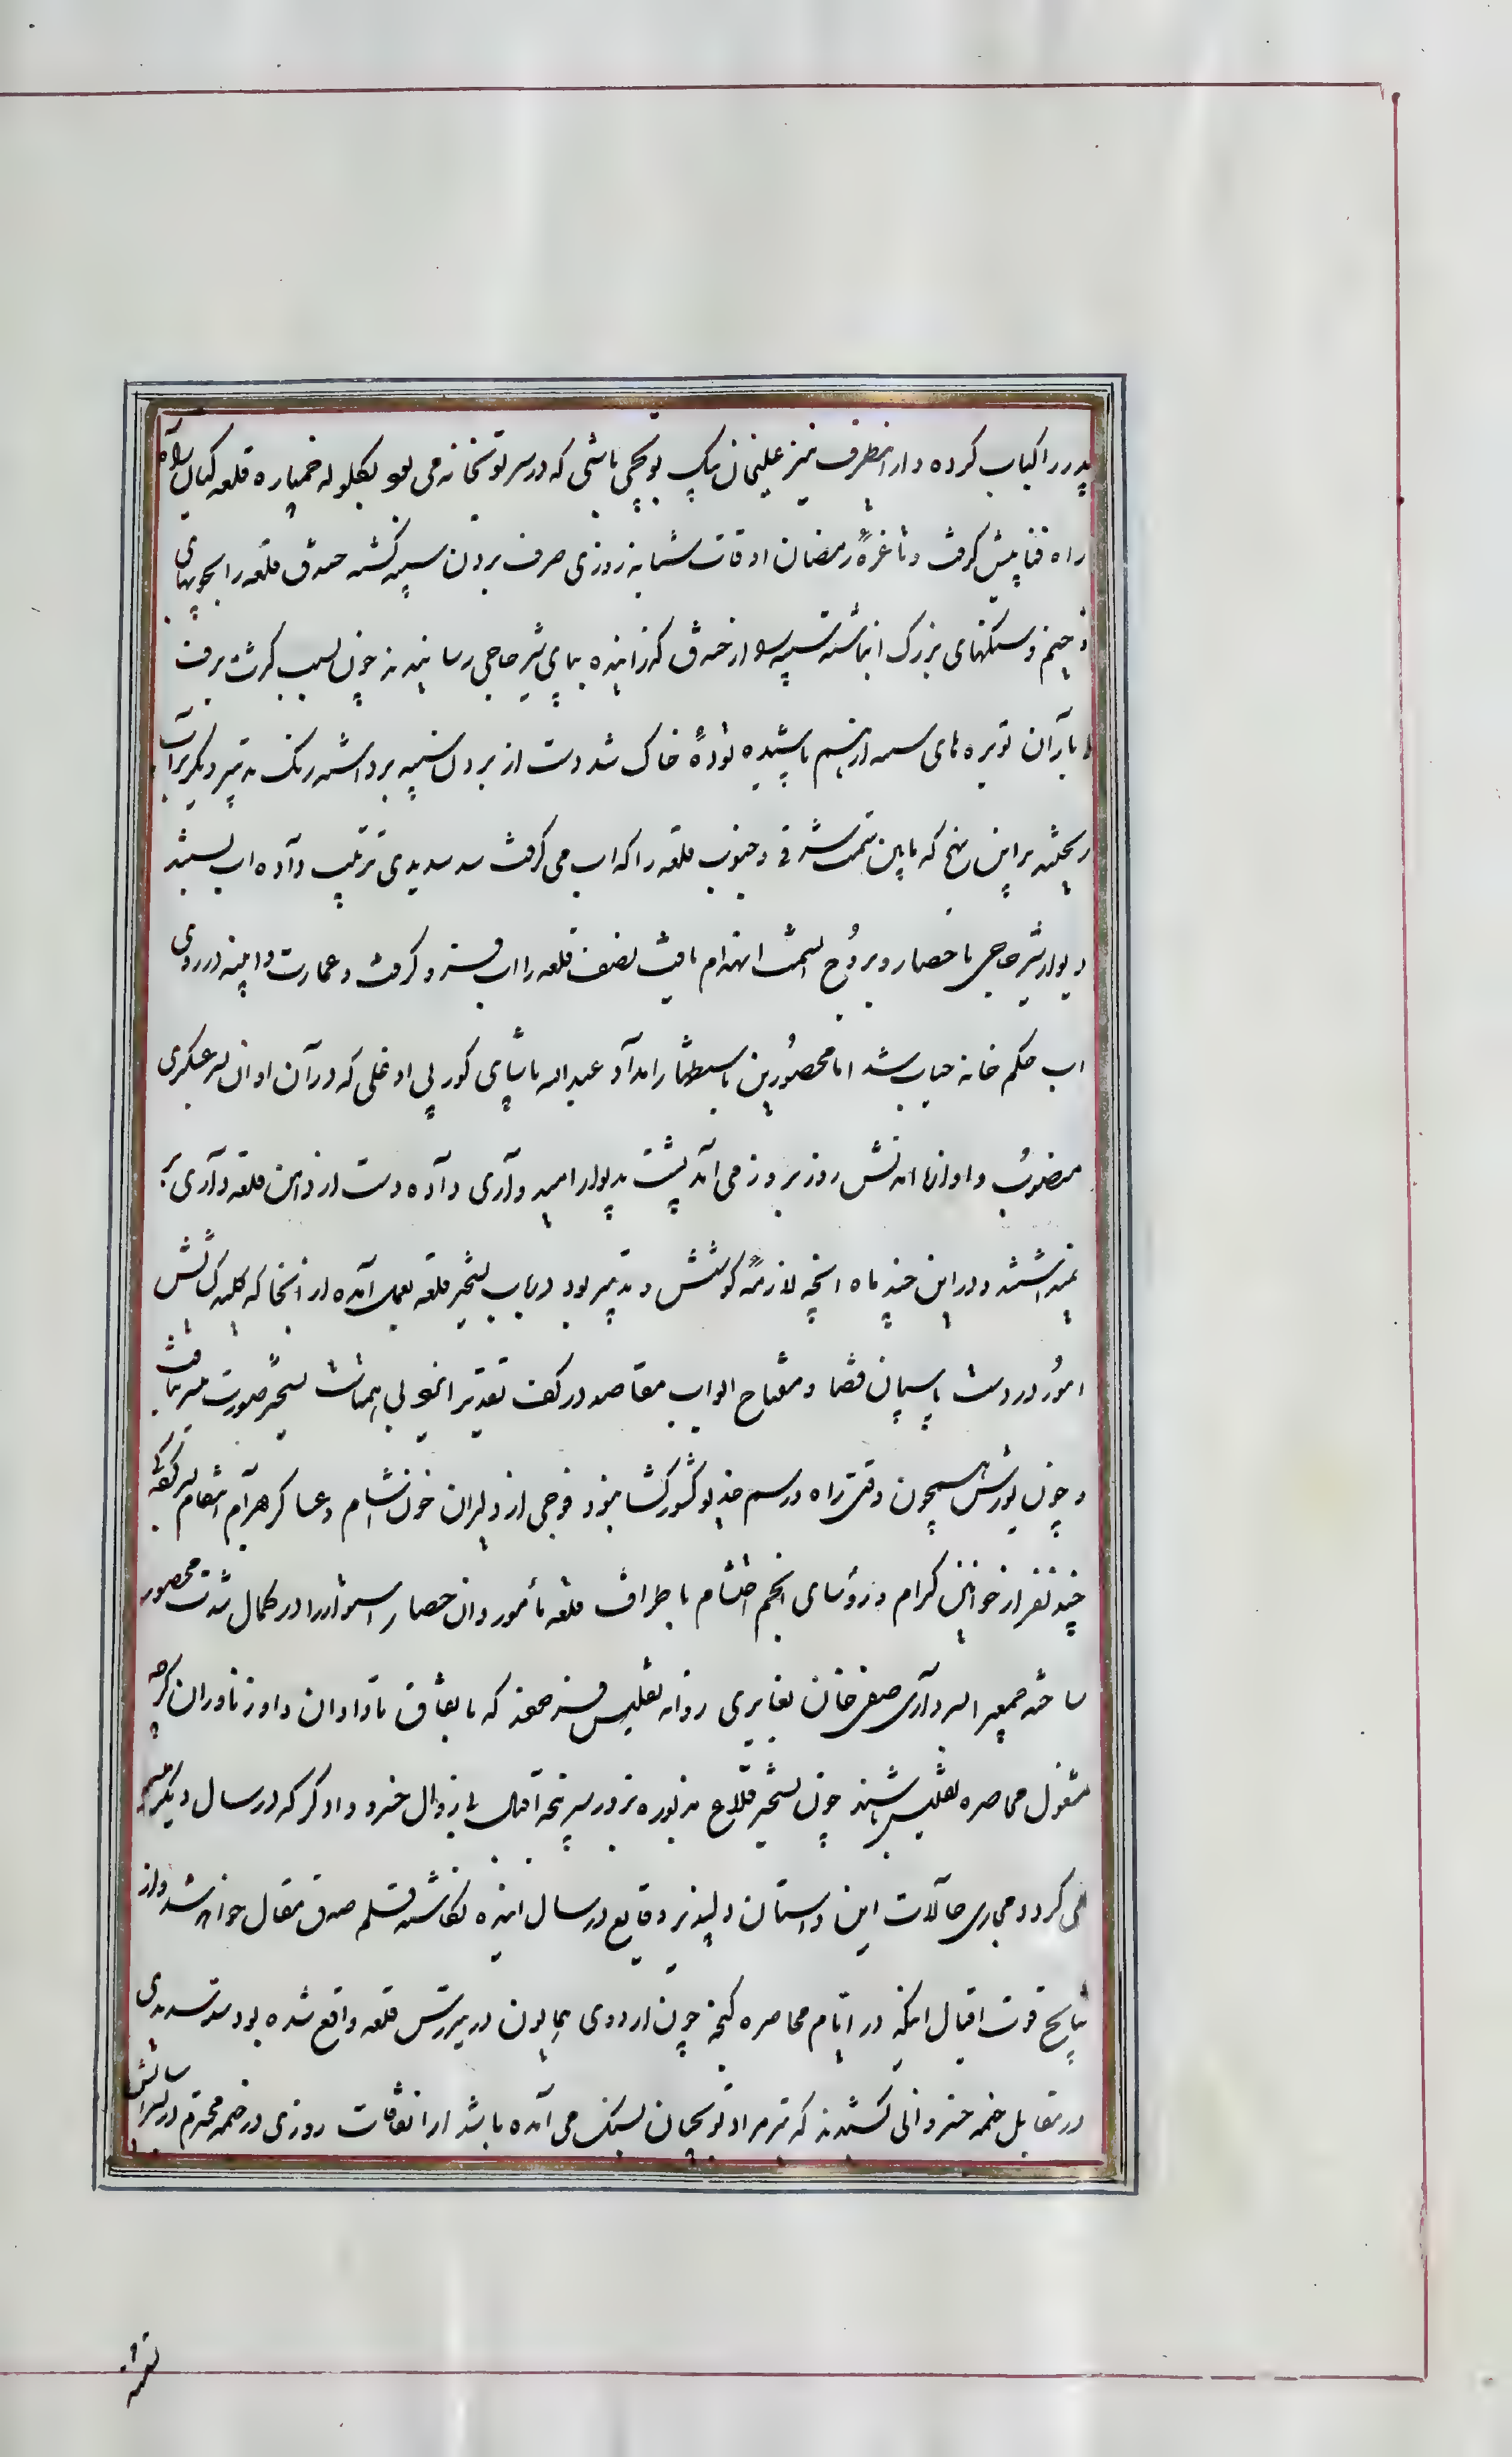 پدر را کباب کرده و از اینطرف نیز علیخان بیک توپچی باشی که در سر توپخانه می بود بگلوله خمپاره قلعه کیان راه
راه فنا پیش گرفت و تا غره رمضان اوقات شبانه روزی صرف بردن سیبه گشته خندق قلعه را بچوبهای
ضخیم و سنگهای بزرگ انباشته سیبه را از خندق گذرانیده بپای شیر حاجی رسانیدند چون بسبب کثرت برف
و باران توبره های سیبه از هم پاشیده توده خاک شد دست از بردن سیبه برداشته رنگ تدبیر دیگر بر آب
ریختند بر این نهج که پایین سمت شرقی و جنوب قلعه را که آب می گرفت سد سدیدی ترتیب داده آب بستند
دیوار شیر حاجی با حصار و بروج آنسمت انهدام یافت نصف قلعه را آب فرو گرفت و عمارت و ابنیه در روی
آب حکم خانه حباب شد اما محصورین باستظهار امداد عبدالله پاشای کورپی اوغلی که در آن اوان بسرعسکری
منصوب و آوازه آمدنش روز بروز می آمد پشت بدیوار امیدواری داده دست از دامن قلعه داری بر
نمیداشتند و در این چند ماه آنچه لازمه کوشش و تدبیر بود در باب تسخیر قلعه بعمل آمده از آنجا که کلید گشایش
امور در دست پاسبان قضا و مفتاح ابواب مقاصد در کف تقدیر ایزد بی همتاست تسخیر صورت نمی یافت
و چون یورش همچون وقتی راه در رسم خدیو کشورگشا نبود فوجی از دلیران خون آشام و عساکر بهرام انتقام بسرکردگی
چند نفر از خوانین کرام و رؤسای انجم احتشام باطراف قلعه مأمور و آن حصار استوار را در کمال شدت محصور
ساخته جمعی را بسرداری صفی خان بغایری روانه تفلیس فرمودند که باتفاق تاوادان و ازناوران گرجی
مشغول محاصره تفلیس باشند چون تسخیر قلاع مزبوره بزور سرپنجه اقبال بی زوال خسرو دادگر که در سال دیگر میسر
می گردد مجاری حالات این داستان دلپذیر در وقایع سال آینده نگاشته قلم صدق مقال خواهد شد و از
نتایج قوت اقبال اینکه در ایام محاصره گنجه چون اردوی همایون در تیررس قلعه واقع شده بود سد سدیدی
در مقابل خیمه خسروانی کشیدند که سر مراد توپچیان بسنگ می آمده باشد از اتفاقات روزی در خیمه محترم در سرایش
نقره